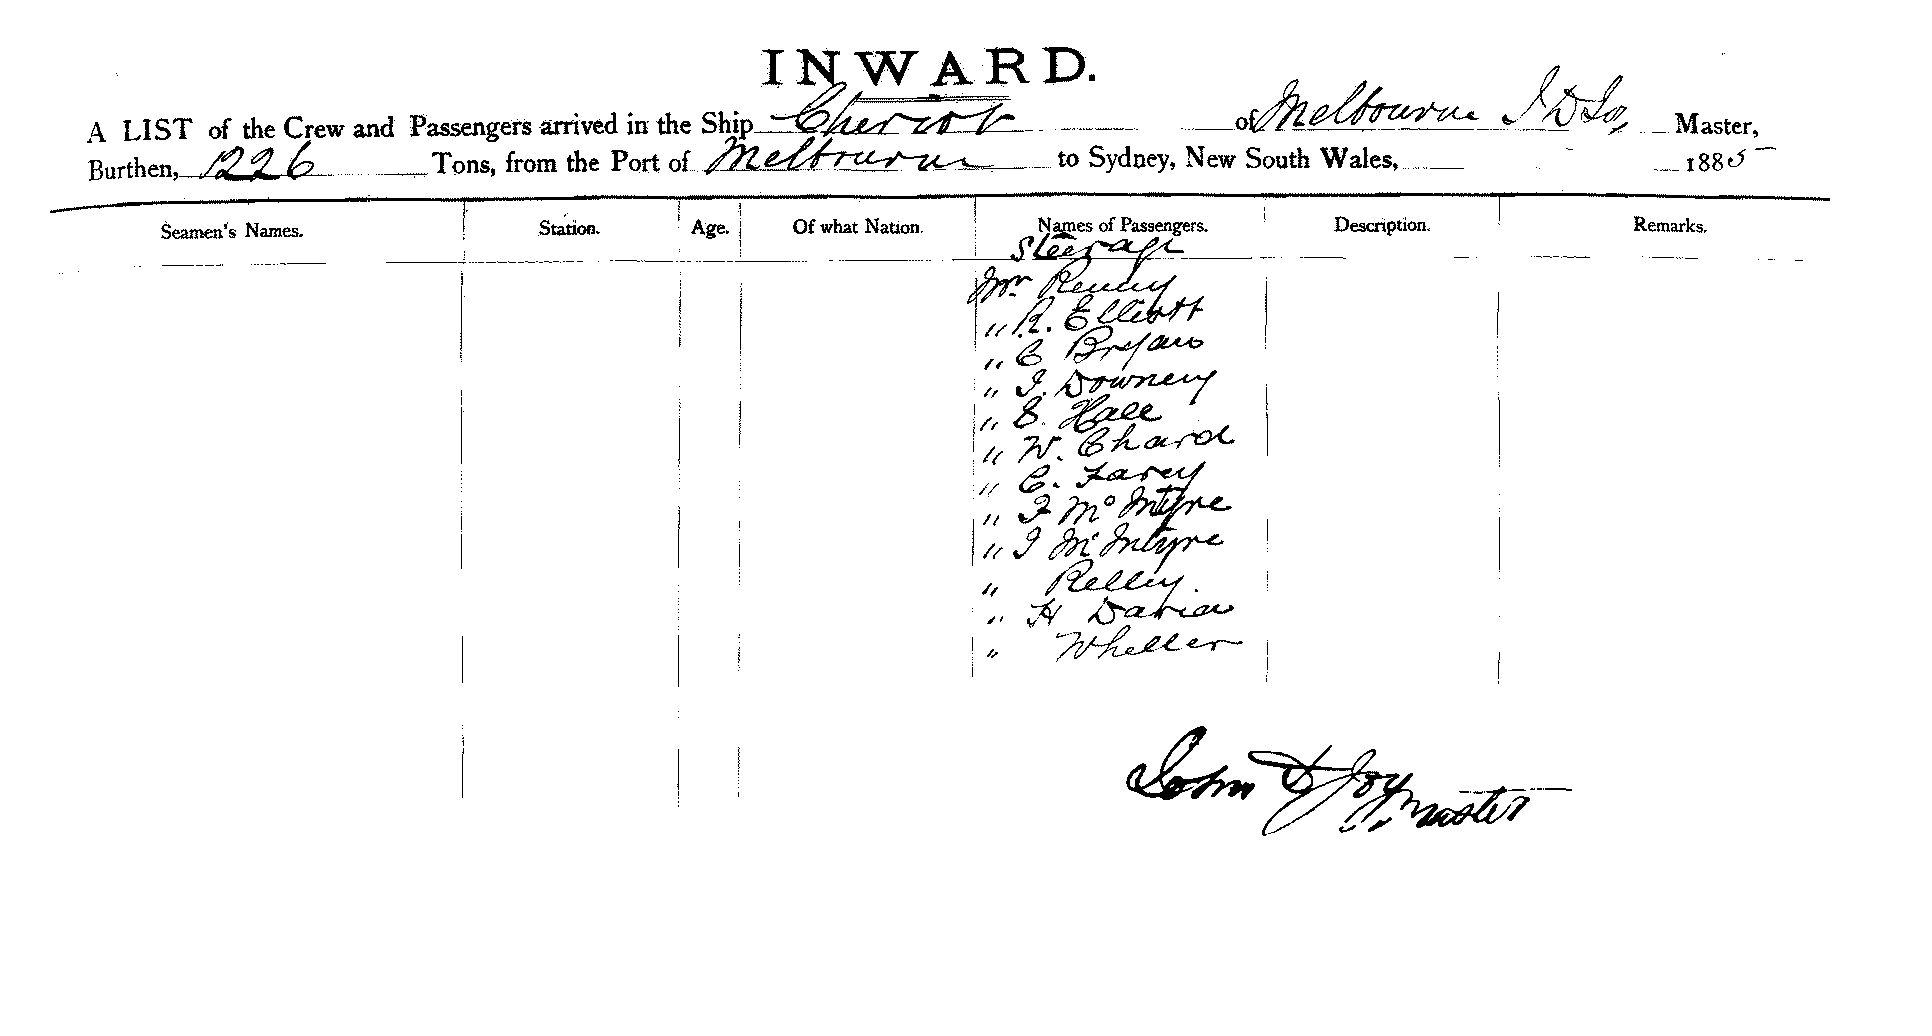 INWARD.
A LIST of the Crew and Passengers arrived in the Ship Cheviot of Melbourne J D Joy, Master,
Burthen, 1226 Tons, from the Port of Melbourne to Sydney, New South Wales, 1885
Seamen's Names. Station. Age. Of what Nation. Names of Passengers. Description. Remarks.
Steerage
Mr Renny
" R. Elliott
" C Bryan
" J. Downey
" E. Hall
" W. Chard
" C. Farey
" F McIntyre
" J McIntyre
" Relley
" H
" Wheller
John D Joy
Master